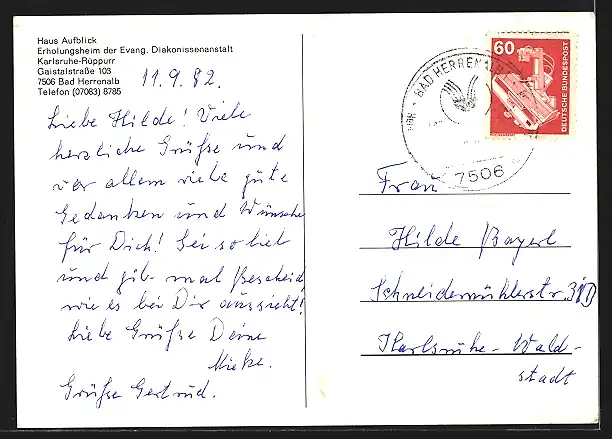 Haus Aufblick
Erholungsheim der Evang. Diakonissenanstalt
Karlsruhe-Rüppurr
Gaistalstraße 103
7506 Bad Herrenalb
Telefon (07083) 8785
11.9.82.
Liebe Hilde! Viele
herzliche Grüße und
vor allem viele gute
Gedanken und Wünsche
für Dich! Sei so lieb
und gib mal Bescheid
wie es bei Dir aussieht!
Liebe Grüße Deine
Mieke.
Grüße Gertrud.
60
DEUTSCHE BUNDESPOST
BAD HERRENALB
7506
Frau
Hilde Bayerl
Schneidemühlerstr.
Karlsruhe-Wald-
stadt